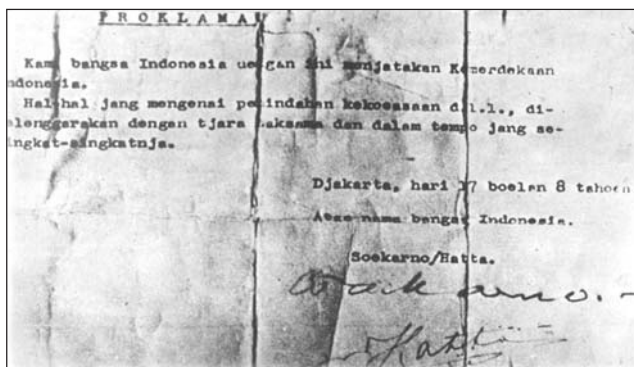 P R O K L A M A
Kami bangsa Indonesia dengan ini menjatakan Kemerdekaan
ndonesia.
Hal-hal jang mengenai pemindahan kekoeasaan d.l.l., di-
elenggarakan dengan tjara saksama dan dalam tempo jang se-
ingkat-singkatnja.
Djakarta, hari 17 boelan 8 tahoen
Atas nama bangsa Indonesia.
Soekarno/Hatta.
Soekarno.
Hatta